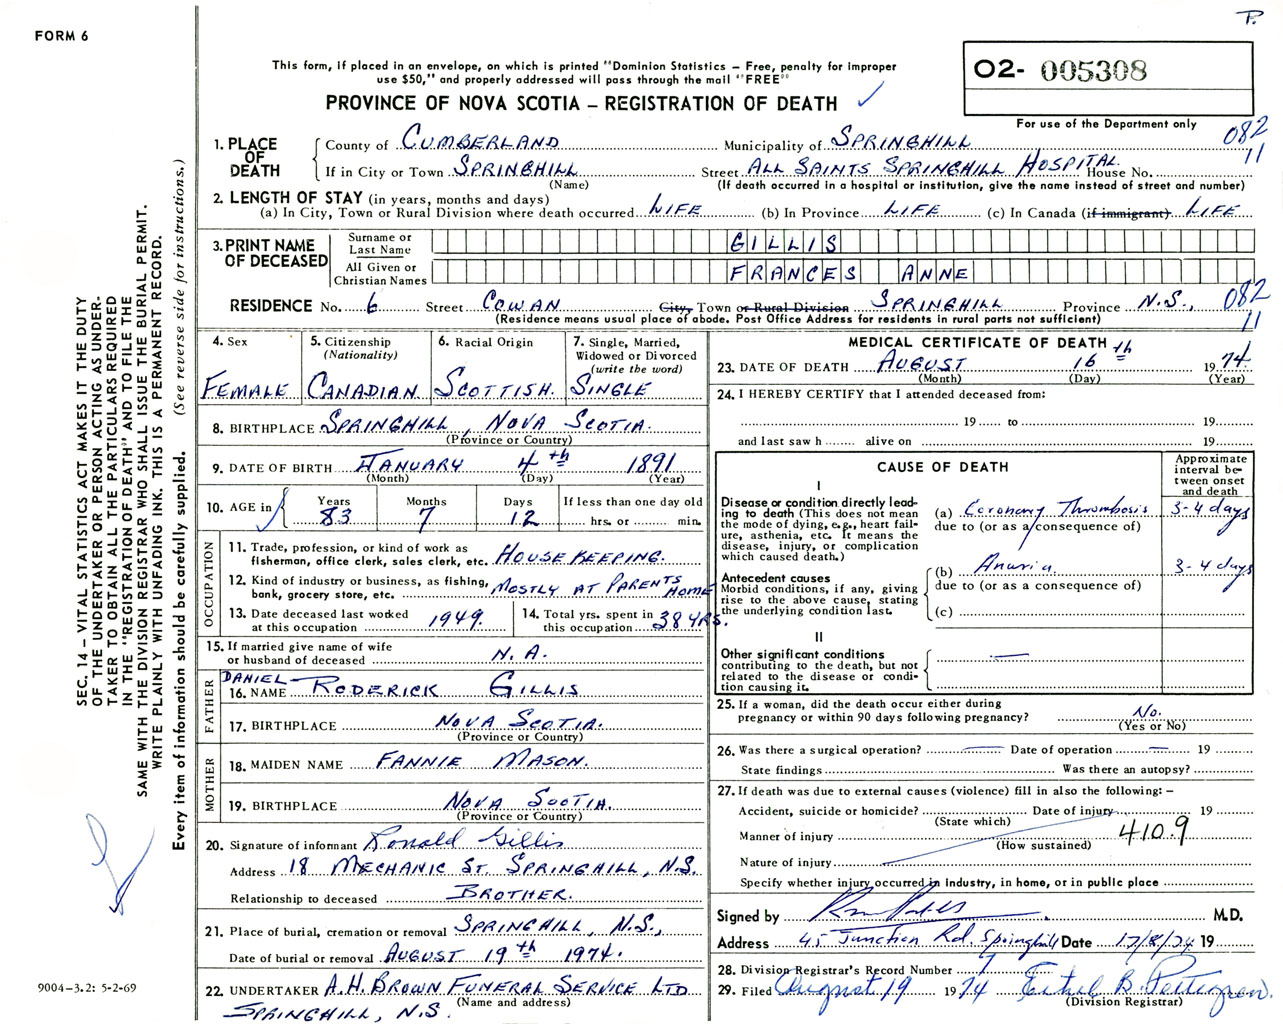 P.
FORM 6
This form, if placed in an envelope, on which is printed "Dominion Statistics – Free, penalty for improper
use $50," and properly addressed will pass through the mail "FREE"
PROVINCE OF NOVA SCOTIA – REGISTRATION OF DEATH ✓
O2- 005308
For use of the Department only
1. PLACE OF DEATH
County of CUMBERLAND Municipality of SPRINGHILL 082
If in City or Town SPRINGHILL Street ALL SAINTS SPRINGHILL HOSPITAL House No. 11
(Name) (If death occurred in a hospital or institution, give the name instead of street and number)
2. LENGTH OF STAY (in years, months and days)
(a) In City, Town or Rural Division where death occurred LIFE (b) In Province LIFE (c) In Canada (if immigrant) LIFE
3. PRINT NAME OF DECEASED
Surname or Last Name GILLIS
All Given or Christian Names FRANCES ANNE
RESIDENCE No. 6 Street COWAN City, Town or Rural Division SPRINGHILL Province N.S., 082
(Residence means usual place of abode. Post Office Address for residents in rural parts not sufficient) 11
4. Sex
FEMALE
5. Citizenship
(Nationality)
CANADIAN
6. Racial Origin
SCOTTISH.
7. Single, Married,
Widowed or Divorced
(write the word)
SINGLE
8. BIRTHPLACE SPRINGHILL, NOVA SCOTIA.
(Province or Country)
9. DATE OF BIRTH JANUARY 4th 1891
(Month) (Day) (Year)
10. AGE in
Years Months Days If less than one day old
83 7 12 hrs. or min.
OCCUPATION
11. Trade, profession, or kind of work as
fisherman, office clerk, sales clerk, etc. HOUSEKEEPING.
12. Kind of industry or business, as fishing,
bank, grocery store, etc. MOSTLY AT PARENTS HOME
13. Date deceased last worked
at this occupation 1949.
14. Total yrs. spent in
this occupation 38 YRS.
15. If married give name of wife
or husband of deceased N.A.
FATHER
16. NAME DANIEL RODERICK GILLIS
17. BIRTHPLACE NOVA SCOTIA.
(Province or Country)
MOTHER
18. MAIDEN NAME FANNIE MASON.
19. BIRTHPLACE NOVA SCOTIA.
(Province or Country)
20. Signature of informant Ronald Gillis
Address 18 MECHANIC ST. SPRINGHILL, N.S.
Relationship to deceased BROTHER.
21. Place of burial, cremation or removal SPRINGHILL, N.S.,
Date of burial or removal AUGUST 19th 1974.
22. UNDERTAKER A.H. BROWN FUNERAL SERVICE LTD
(Name and address)
SPRINGHILL, N.S.
MEDICAL CERTIFICATE OF DEATH
23. DATE OF DEATH AUGUST 16th 1974.
(Month) (Day) (Year)
24. I HEREBY CERTIFY that I attended deceased from:
19 to 19
and last saw h alive on 19
CAUSE OF DEATH
Approximate
interval be-
tween onset
and death
I
Disease or condition directly lead-
ing to death (This does not mean
the mode of dying, e.g., heart fail-
ure, asthenia, etc. It means the
disease, injury, or complication
which caused death.)
(a) Coronary Thrombosis 3-4 days
due to (or as a consequence of)
Antecedent causes
Morbid conditions, if any, giving
rise to the above cause, stating
the underlying condition last.
(b) Anuria 3-4 days
due to (or as a consequence of)
(c)
II
Other significant conditions
contributing to the death, but not
related to the disease or condi-
tion causing it.
25. If a woman, did the death occur either during
pregnancy or within 90 days following pregnancy? No.
(Yes or No)
26. Was there a surgical operation? — Date of operation — 19
State findings Was there an autopsy?
27. If death was due to external causes (violence) fill in also the following: –
Accident, suicide or homicide? Date of injury 19
(State which)
Manner of injury 410.9
(How sustained)
Nature of injury
Specify whether injury occurred in industry, in home, or in public place
Signed by M.D.
Address 45 Junction Rd. Springhill Date 17/8/74 19
28. Division Registrar's Record Number
29. Filed August 19 1974 Ethel B.
(Division Registrar)
SEC. 14 – VITAL STATISTICS ACT MAKES IT THE DUTY
OF THE UNDERTAKER OR PERSON ACTING AS UNDER-
TAKER TO OBTAIN ALL THE PARTICULARS REQUIRED
IN THE "REGISTRATION OF DEATH" AND TO FILE THE
SAME WITH THE DIVISION REGISTRAR WHO SHALL ISSUE THE BURIAL PERMIT.
WRITE PLAINLY WITH UNFADING INK. THIS IS A PERMANENT RECORD.
Every item of information should be carefully supplied. (See reverse side for instructions.)
9004-3.2: 5-2-69